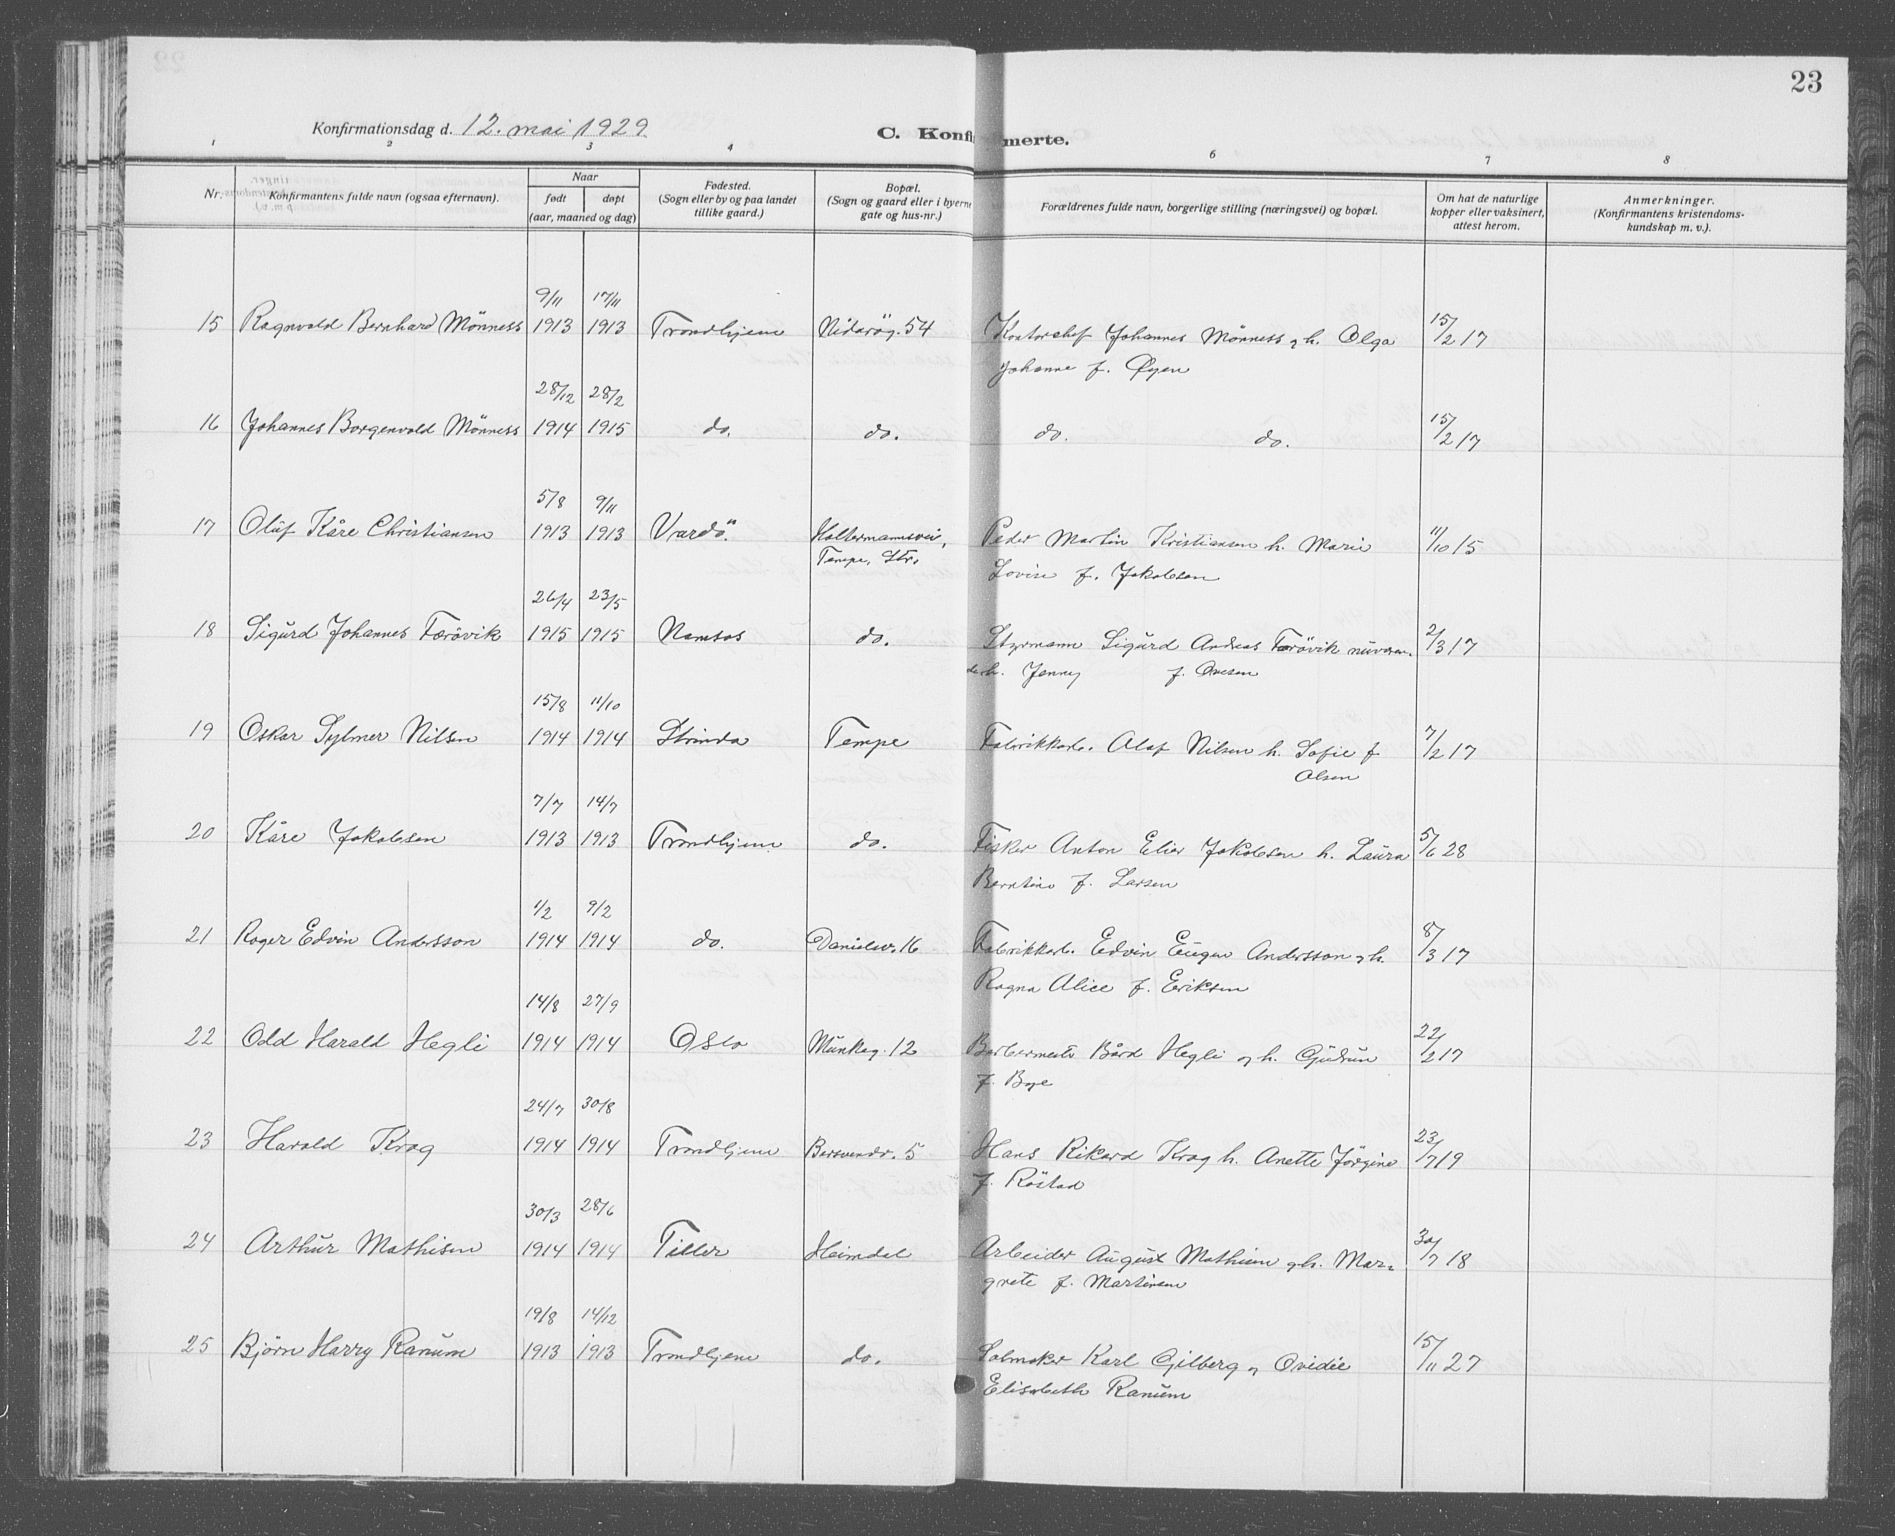 23
Konfirmationsdag d. 12. mai 1929
C. Konfirmerte.
1 2 3 4 6 7 8
Nr. Konfirmantens fulde navn (ogsaa efternavn). Naar født døpt (aar, maaned og dag) Fødested. (Sogn eller by og paa landet tillike gaard.) Bopæl. (Sogn og gaard eller i byerne gate og hus-nr.) Forældrenes fulde navn, borgerlige stilling (næringsvei) og bopæl. Om hat de naturlige kopper eller vaksinert, attest herom. Anmerkninger. (Konfirmantens kristendoms-kundskap m. v.).
9/11 17/11
15 Ragnvald Bernhard Mönness 1913 1913 Trondhjem Nidarög. 54 Kontorchef Johannes Mönness og h. Olga 15/2 17
Johanne f. Öyen
28/12 28/2
16 Johannes Borgenvald Mönness 1914 1915 do. do. do. do. 15/2 17
5/8 9/11
17 Oluf Kåre Christiansen 1913 1913 Vardö. Holtermannsvei, Peder Martin Kristiansen h. Marie 11/10 15
Tempe, Str. Lovise f. Jakobsen
26/4 23/5
18 Sigurd Johannes Færövik 1915 1915 Namsos do. Styrmann Sigurd Andreas Færövik nuværen- 2/3 17
de h. Jenny f. Ovesen
15/8 11/10
19 Oskar Sylmer Nilsen 1914 1914 Strinda Tempe Fabrikkarb. Olaf Nilsen h. Sofie f 7/2 17
Olsen
7/7 14/7
20 Kåre Jakobsen 1913 1913 Trondhjem do. Fisker Anton Elier Jakobsen h. Laura 5/6 28
Berntine f. Larsen
1/2 9/2
21 Roger Edvin Andersson 1914 1914 do. Danielsv. 16 Fabrikkarb. Edvin Eugen Andersson og h. 8/3 17
Ragna Alice f. Eriksen
14/8 27/9
22 Odd Harald Hegli 1914 1914 Oslo Munkeg. 12 Barbermestr Bård Hegli og h. Gudrun 22/2 17
f. Bye
24/7 30/8
23 Harald Krog 1914 1914 Trondhjem Bersvendv. 5 Hans Rikard Krog h. Anette Jörgine 23/7 19
f. Röstad
30/3 28/6
24 Arthur Mathisen 1914 1914 Tiller Heimdal Arbeider August Mathisen og h. Mar- 30/7 18
grete f. Martinsen
19/8 14/12
25 Bjørn Harry Ranum 1913 1913 Trondhjem do. Salmaker Karl Gilberg og Ovidie 15/11 27
Elisabeth Ranum